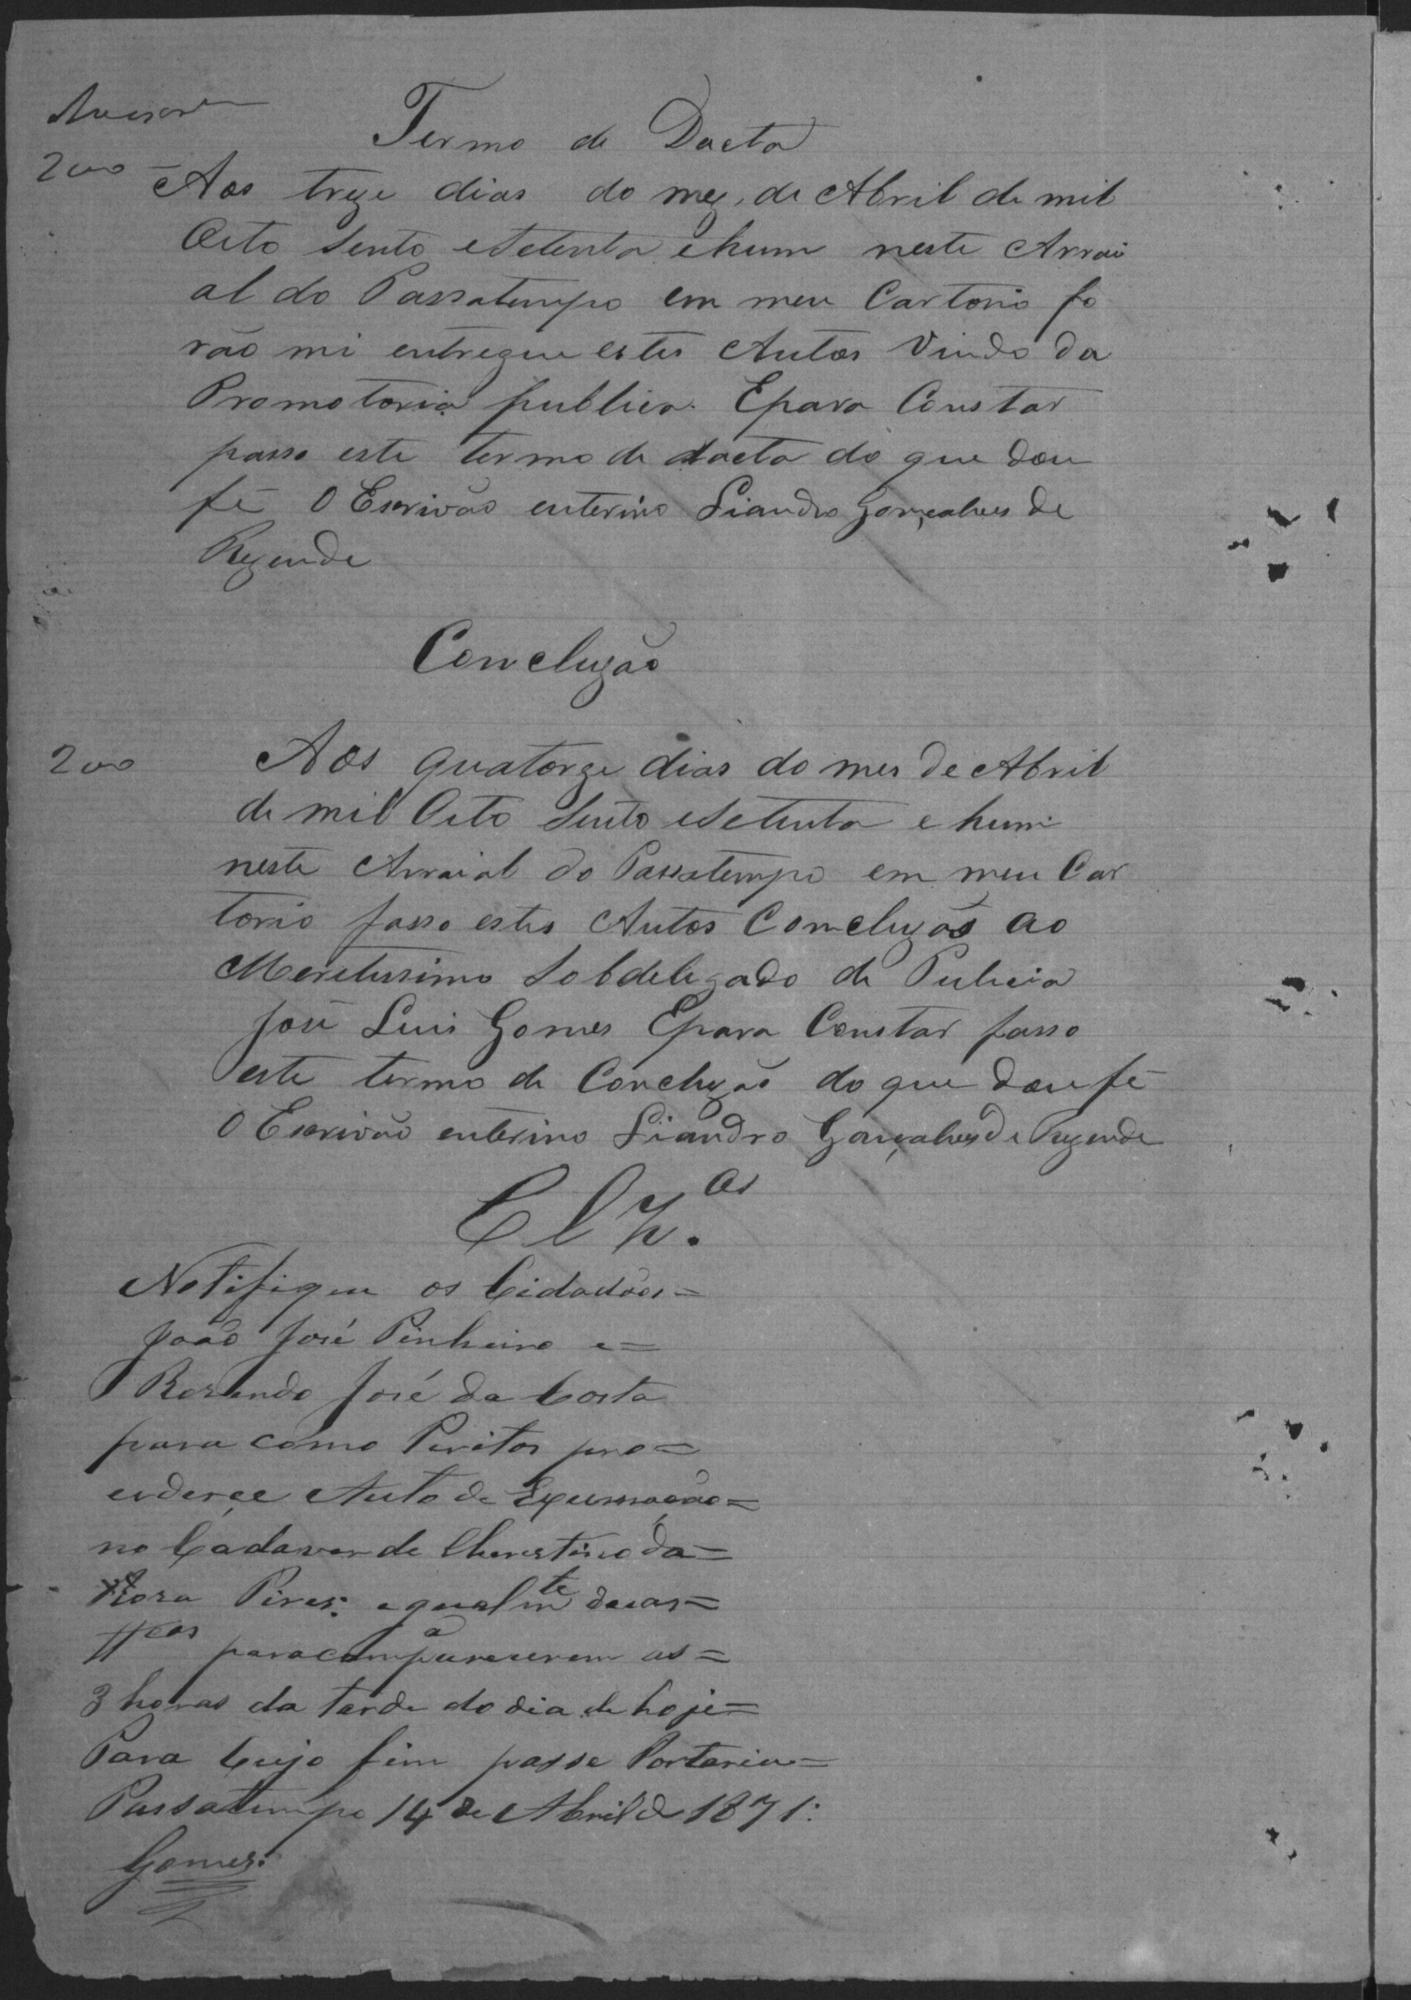 Termo de Dacta
200
Aos treze dias do mez, de Abril de mil
Oito Sento e Setenta e hum neste Arrai
al do Passatempo em meu Cartorio fo
rão mi entregue estes Autos Vindo da
Promotoria publica. E para Constar
passo este termo de dacta do que dou
fé O Escrivão enterino Liandro Gonçalves de
Rezende
Concluzão
200
Aos quatorze dias do mes de Abril
de mil Oito Sento e Setenta e hum
neste Arraial do Passatempo em meu Car
torio fasso estes Autos Comcluzos ao
Meretissimo Sobdelegado de Pulicia
José Luis Gomes E para Constar fasso
este termo de Concluzão do que dou fé
O Escrivão enterino Liandro Gonçalves de Rezende
Clz.os
Notifique os Cidadões=
João José Pinheiro e=
Rozendo José da Costa
para como Peritos pro=
cederçe Auto de
no Cadaver de da=
Roza Pires: e igualmte duas=
ttas para comparecerem as=
3 horas da tarde do dia de hoje=
Para Cujo fim passe Portaria=
Passatempo 14 de Abril de 1871:
Gomes: